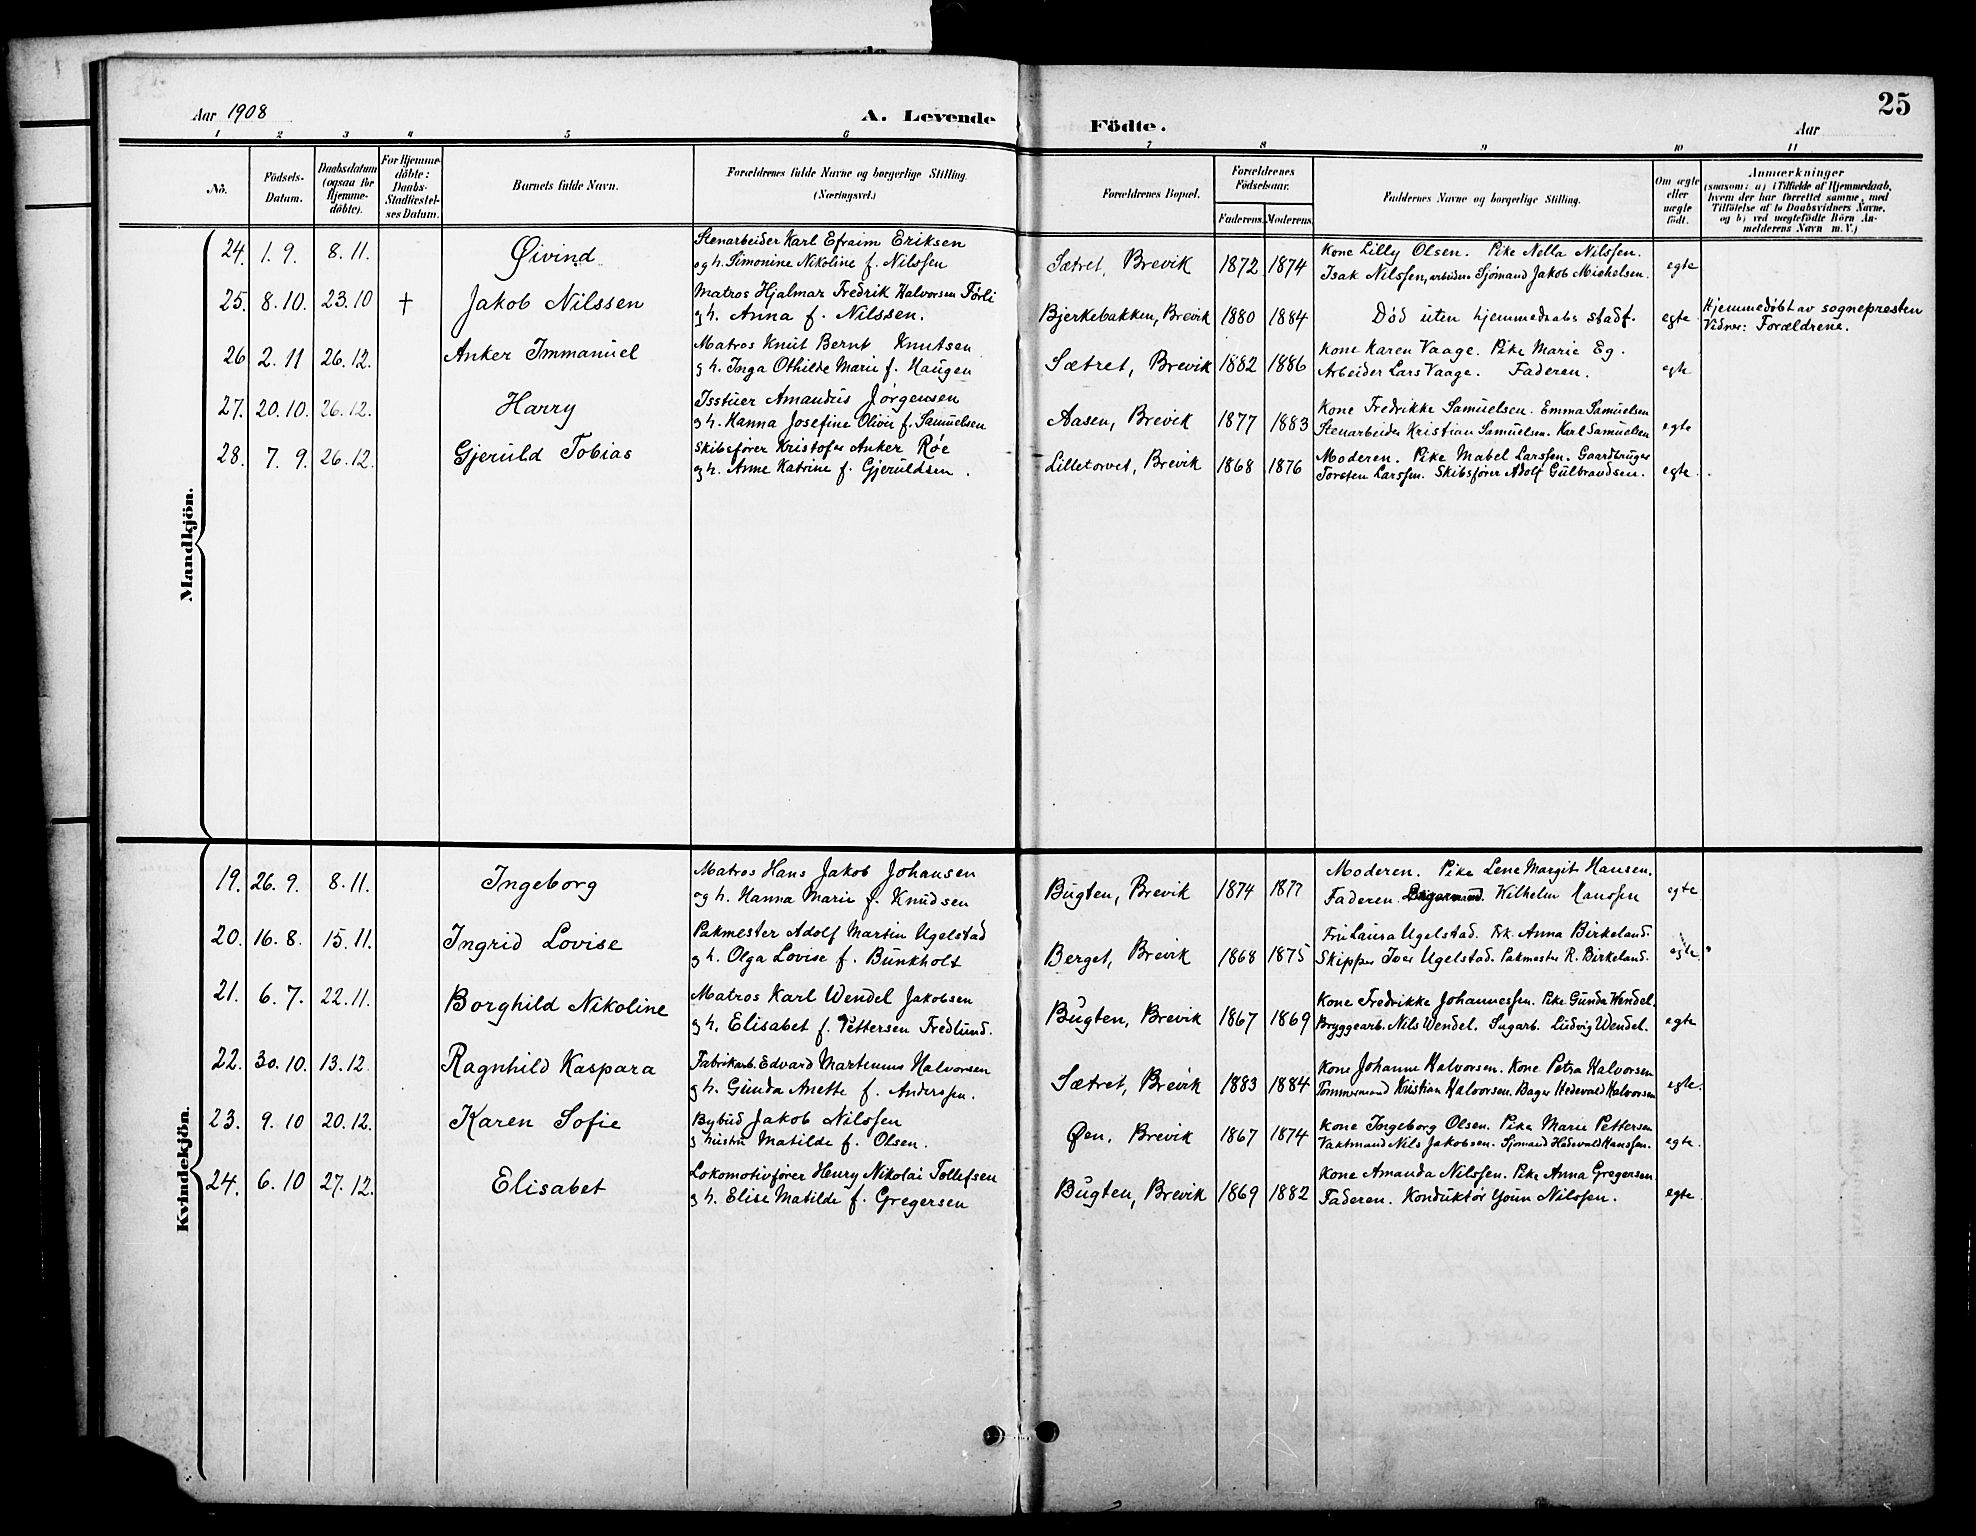 25
Aar 1908
A. Levende
Födte.
Aar
1 2 3 4 5 6 7 8 9 10 11
No.
Födsels-
Datum.
Daabsdatum
(ogsaa for
Hjemme-
döbte).
For Hjemme-
döbte:
Daabs-
Stadfæstel-
ses Datum.
Barnets fulde Navn.
Forældrenes fulde Navne og borgerlige Stilling
(Næringsvei.)
Forældrenes Bopæl.
Forældrenes
Födselsaar.
Faderens. Moderens.
Faddernes Navne og borgerlige Stilling.
Om ægte
eller
uægte
födt.
Anmærkninger
(saasom: a) i Tilfælde af Hjemmedaab,
hvem der har forrettet samme, med
Tilföielse af to Daabsvidners Navne,
og b) ved uægtefödte Börn An-
melderens Navn m. V.)
Mandkjön.
24. 1. 9. 8. 11. Øivind
Stenarbeider Karl Efraim Eriksen
og h. Simonine Nikoline f. Nilssen
Sætret, Brevik 1872 1874
Kone Lilly Olsen. Pike Nella Nilssen.
Isak Nilssen, arbeider. Sjømand Jakob Michelsen. egte
25. 8. 10. 23. 10 † Jakob Nilssen
Matros Hjalmar Fredrik Halvorsen Førli
og h. Anna f. Nilssen.
Bjerkebakken, Brevik 1880 1884
Død uten hjemmedaabs stadf. egte
Hjemmedøbt av sognepresten
Vidner: Forældrene.
26 2. 11 26. 12. Anker Immanuel
Matros Knut Bernt Knutsen
og h. Inga Othilde Marie f. Haugen
Sætret, Brevik 1882 1886
Kone Karen Vaage. Pike Marie Eg.
Arbeider Lars Vaage. Faderen. egte
27. 20. 10. 26. 12. Harry
Isstuer Amandus Jørgensen
og h. Hanna Josefine Olivie f. Samuelsen
Aasen, Brevik 1877 1883
Kone Fredrikke Samuelsen. Emma Samuelsen
Stenarbeider Kristian Samuelsen. Karl Samuelsen egte
28. 7. 9. 26. 12. Gjeruld Tobias
Skibsfører Kristofer Anker Røe
og h. Anne Katrine f. Gjeruldsen.
Lilletorvet, Brevik 1868 1876
Moderen. Pike Mabel Larssen. Gaardbruger
Torsten Larssen. Skibsfører Adolf Gulbrandsen. egte
Kvindekjön.
19. 26. 9. 8. 11. Ingeborg
Matros Hans Jakob Johansen
og h. Hanna Marie f. Knudsen
Bugten, Brevik 1874 1877
Moderen. Pike Lene Margit Hansen.
Faderen. Wilhelm Hanssen egte.
20. 16. 8. 15. 11. Ingrid Lovise
Pakmester Adolf Martin Ugelstad
og h. Olga Lovise f. Bunkholt
Berget, Brevik 1868 1875
Fru Laura Ugelstad. Frk. Anna Birkeland.
Skipper Iver Ugelstad. Pakmester R. Birkeland. egte.
21. 6. 7. 22. 11. Borghild Nikoline
Matros Karl Wendel Jakobsen
og h. Elisabet f. Pettersen Fredlund.
Bugten, Brevik 1867 1869
Kone Fredrikke Johannessen. Pike Gunda Wendel.
Bryggearb. Nils Wendel. Sagarb. Ludvig Wendel. egte
22. 30. 10. 13. 12 Ragnhild Kaspara
Fabrikarb. Edvard Martinius Halvorsen
og h. Gunda Anette f. Anderssen.
Sætret, Brevik 1883 1884
Kone Johanne Halvorsen. Kone Petra Halvorsen
Tømmermand Kristian Halvorsen. Bager Hedevald Halvorsen egte.
23. 9. 10 20. 12. Karen Sofie
Bybud Jakob Nilssen
og hustru Matilde f. Olsen.
Øen, Brevik 1867 1874
Kone Ingeborg Olsen. Pike Marie Pettersen
Vaktmand Nils Jakobsen. Sjømand Hedevald Hanssen. egte.
24. 6. 10 27. 12. Elisabet
Lokomotivfører Henry Nikolai Tollefsen
og h. Elise Matilde f. Gregersen
Bugten, Brevik 1869 1882
Kone Amanda Nilssen. Pike Anna Gregersen
Faderen. Konduktør Youn Nilssen. egte